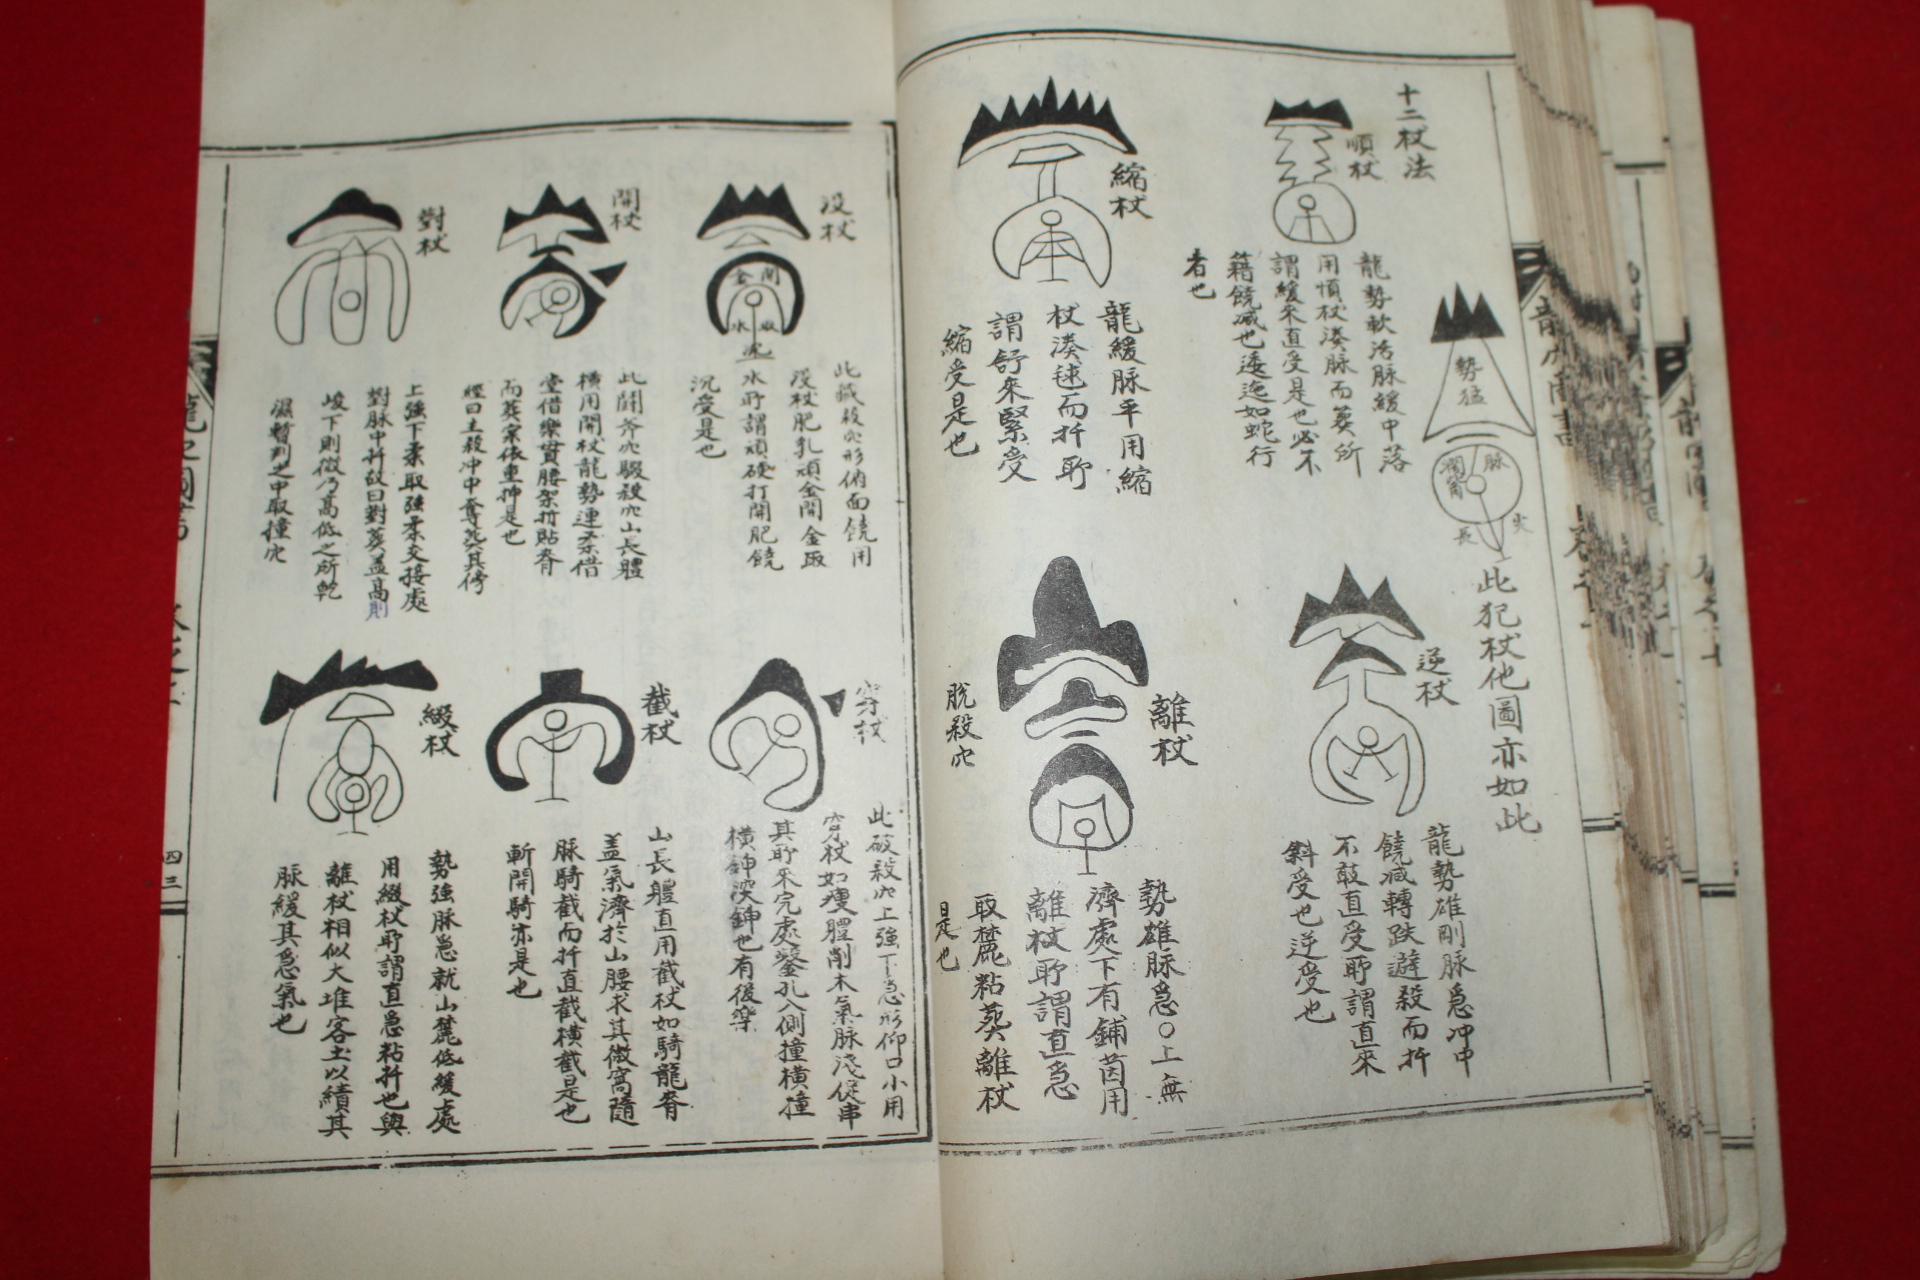 十二杖法
順杖
龍勢軟活脉緩中落
用順杖湊脉而葬所
謂緩來直受是也必不
藉饒减也逶迤如蛇行
者也
勢猛
脉
長
此犯杖他圖亦如此
縮杖
龍緩脉平用縮
杖湊毬而扦所
謂舒來緊受
縮受是也
逆杖
龍勢雄剛脉急冲中
饒减轉跌避殺而扦
不敢直受所謂直來
斜受也逆受也
離杖
脫殺穴
勢雄脉急〇上無
濟處下有鋪茵用
離杖所謂直急
取麓粘葬離杖
是也
没杖
開
金
取
水
此藏殺穴形俯面饒用
没杖肥乳頑金開金取
水所謂頑硬打開肥饒
沉受是也
開杖
此鬪斧穴騘殺穴山長體
橫用開杖龍勢連柔借
堂借樂貫腰架扦貼脊
而葬案依重抻是也
經曰主殺冲中奪葬其傍
對杖
上強下柔取強柔交接處
對脉中扦故曰對葬盖高則
峻下則微乃高低之所乾
濕暫判之中取撞穴
穿杖
此破殺穴上強下急形仰口小用
穿杖如瘦體削木氣脉淺促串
其所釆完處鑿孔入側撞橫撞
橫鉮深鉮也有後樂
截杖
山長體直用截杖如騎龍脊
盖氣濟於山腰求其微窩隨
脉騎截而扦直截橫截是也
斬開騎亦是也
綴杖
勢強脉急就山麓低緩處
用綴杖所謂直急粘扦也與
離杖相似大堆客土以績其
脉緩其急氣也
四三